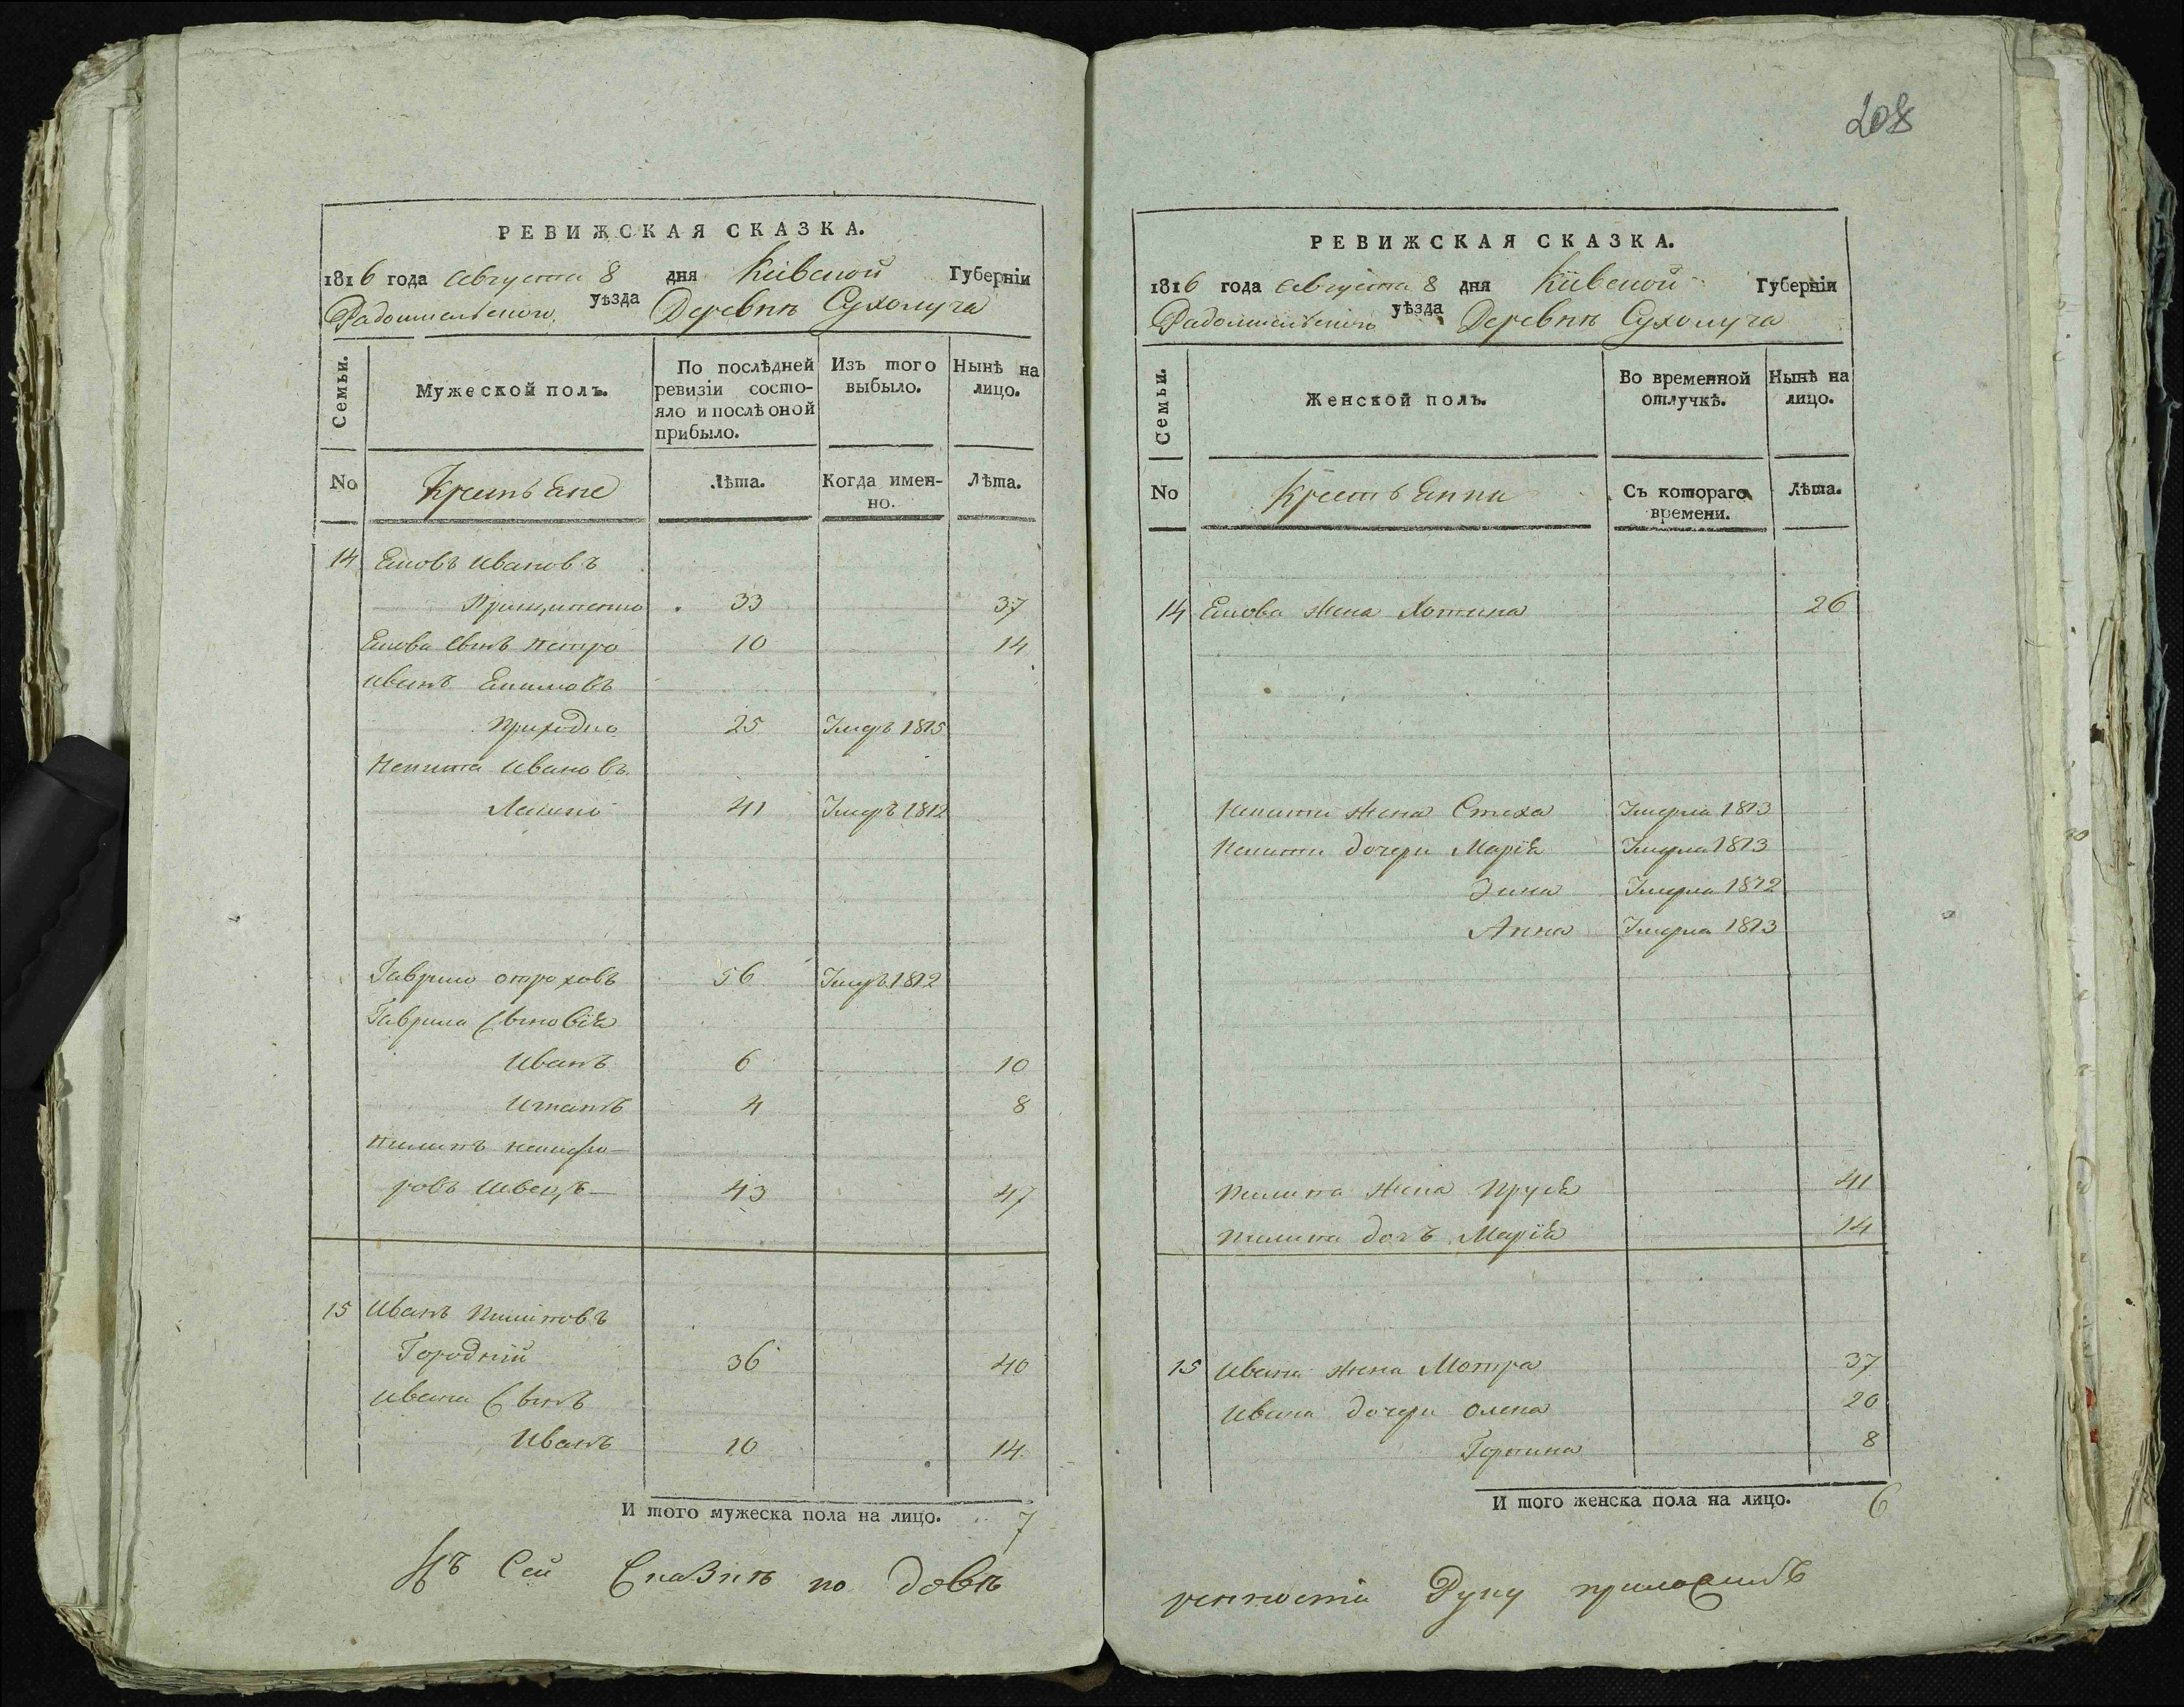 РЕВИЖСКАЯ СКАЗКА.
1816 года Августа 8 дня Кіевской Губерніи
Радомисльского уѣзда Деревнѣ Сухолуча
Семьи.
Мужеской полъ.
По послѣдней ревизіи состо-
яло и послѣ оной
прибыло.
Изъ того
выбыло.
Нынѣ на
лицо.
No
Крестьяне
Лѣта.
Когда имен-
но.
Лѣта.
14 Яковъ Ивановъ
33 37
Якова Сынъ Петро 10 14
Иванъ Якимовъ
Приходко 25 Умеръ 1815
Никита Ивановъ
41 Умеръ 1812
Гаврило 56 Умеръ 1812
Гаврила Сыновія
Иванъ 6 10
Игнатъ 4 8
Пилипъ Никифо-
ровъ Швецъ 43 47
15 Иванъ Пилиповъ
Городній 36 40
Ивана Сынъ
Иванъ 10 14
И того мужеска пола на лицо. 7
Къ Сей Сказкѣ по довѣ
208
РЕВИЖСКАЯ СКАЗКА.
1816 года Августа 8 дня Кіевской Губерніи
Радомисльского уѣзда Деревнѣ Сухолуча
Семьи.
Женской полъ.
Во временной
отлучкѣ.
Нынѣ на
лицо.
No
Крестьянки
Съ котораго
времени.
Лѣта.
14 Якова жена Хотина 26
Никити жена Стеха Умерла 1813
Никити дочери Марія Умерла 1813
Умерла 1812
Анна Умерла 1813
Пилипа жена Прися 41
Пилипа дочъ Марія 14
15 Ивана жена Мотра 37
Ивана дочери Олена 20
Горпина 8
И того женска пола на лицо. 6
ренности Руку приложилъ